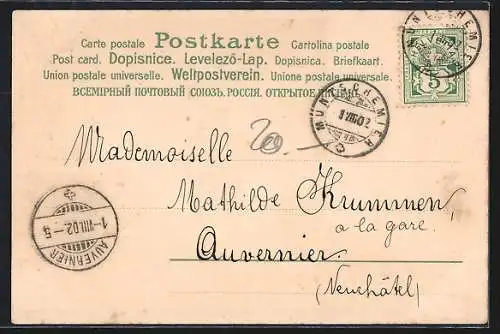 Carte postale Postkarte Cartolina postale
Post card. Dopisnice. Levelező-Lap. Dopisnica. Briefkaart.
Union postale universelle. Weltpostverein. Unione postale universale.
ВСЕМІРНЫЙ ПОЧТОВЫЙ СОЮЗЪ. РОССІЯ. ОТКРЫТОЕ ПИСЬМО.
MÜNTSCHEMIER
5
MÜNTSCHEMIER
1.VIII.02
20
Mademoiselle
Mathilde Krummen
a la gare.
Auvernier.
(Neuchâtel)
1-VIII.02-5
AUVERNIER